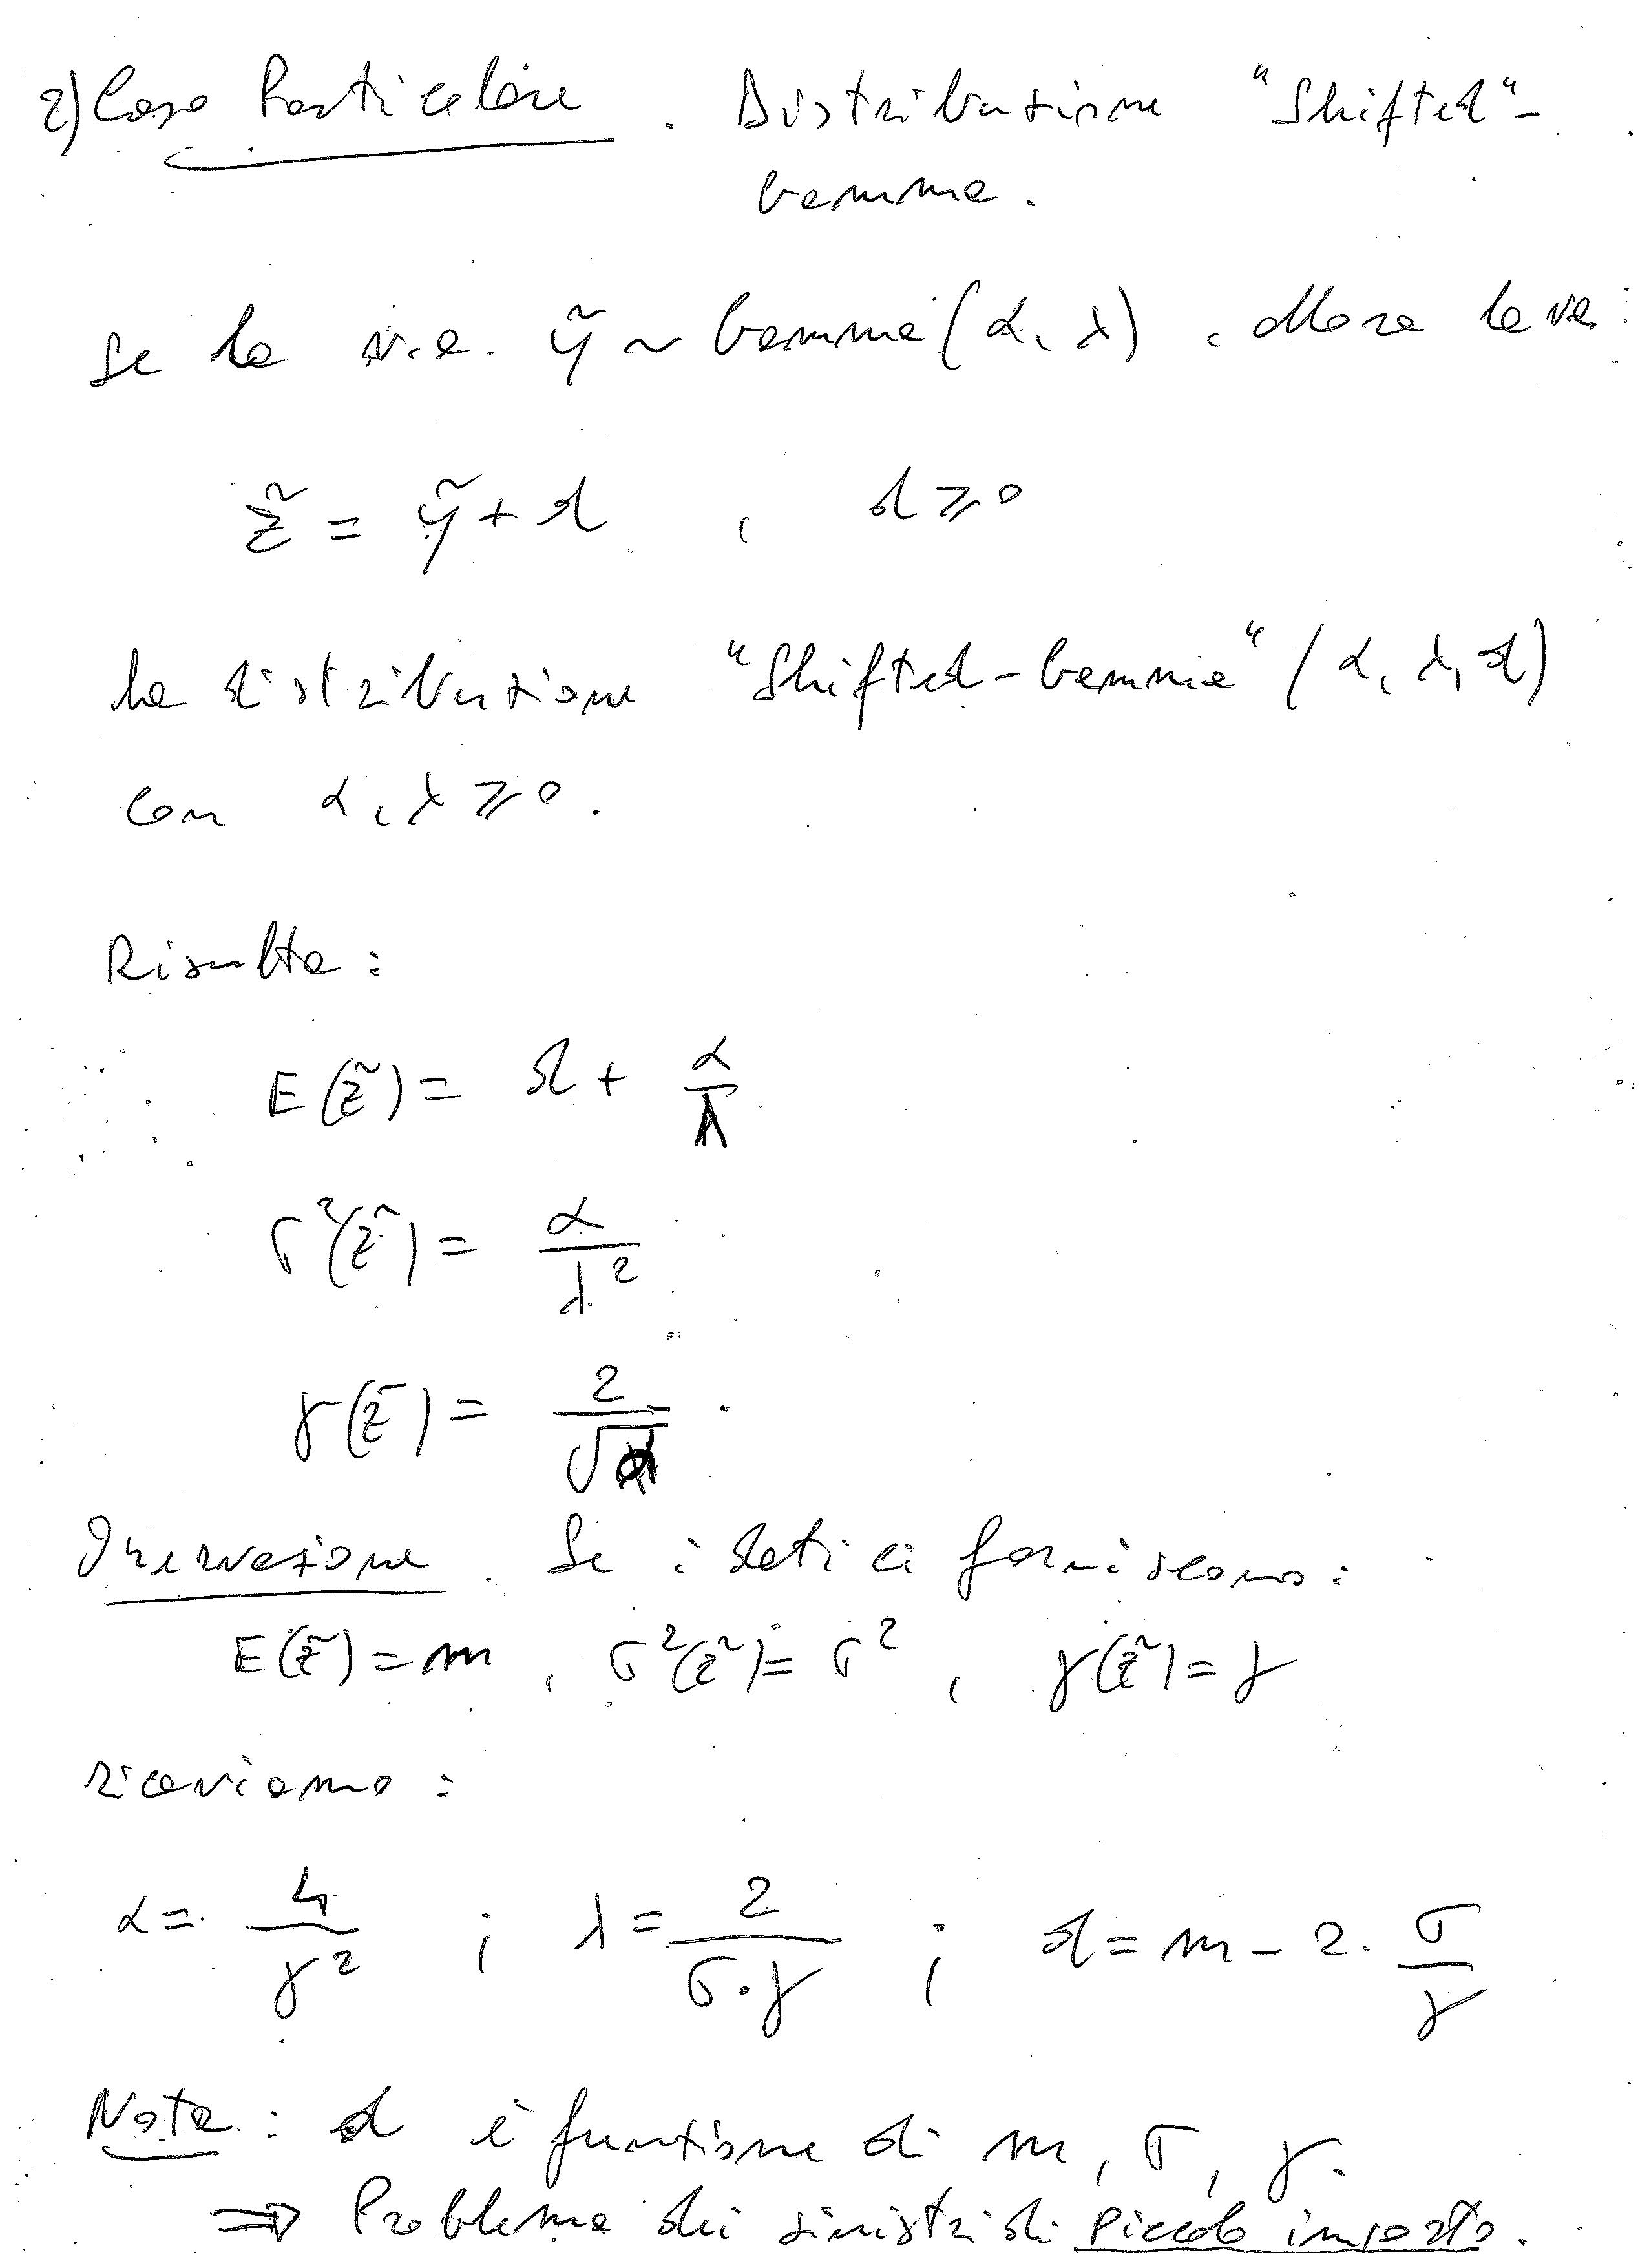 2) Caso Particolare. Distribuzione "Shifted"-
Gamma.
Se la v.a. ỹ ~ Gamma (α, λ), allora la va:
z̃ = ỹ + d , d ⩾ 0
ha distribuzione "Shifted-Gamma" (α, λ, d)
con α, λ ⩾ 0.
Risulta:
E(z̃) = d + α/λ
σ²(z̃) = α/λ²
γ(z̃) = 2/√α.
Osservazione. Se i dati ci forniscono:
E(z̃) = m , σ²(z̃) = σ² , γ(z̃) = γ
ricaviamo:
α = 4/γ² ; λ = 2/(σ·γ) ; d = m - 2·σ/γ
Nota: d è funzione di m, σ, γ.
⇒ Problema dei sinistri di piccolo importo.